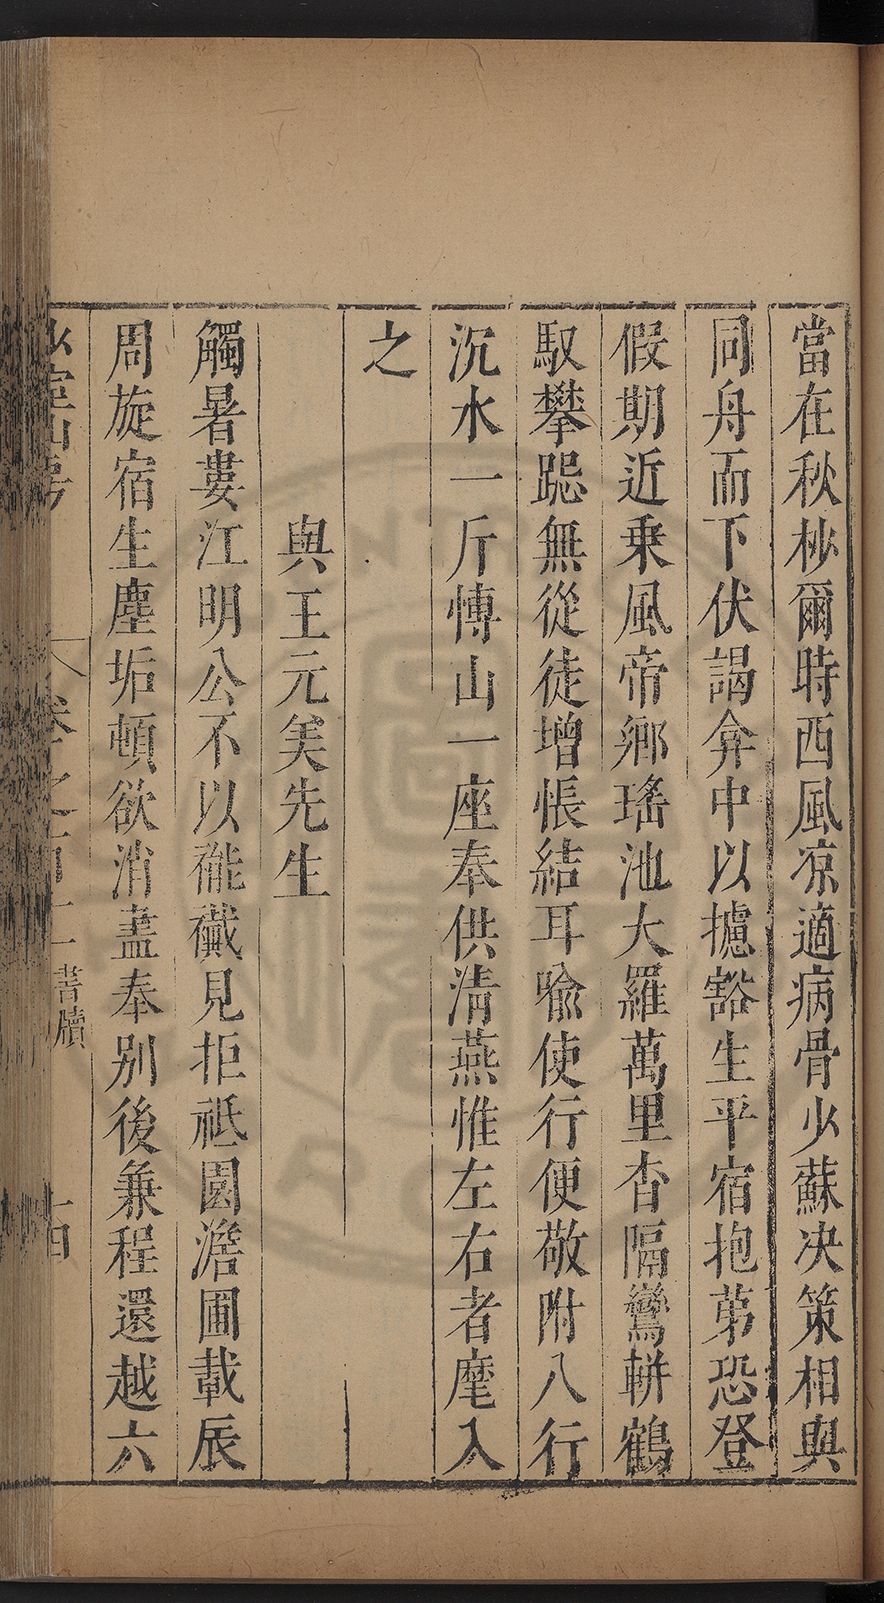 當在秋杪爾時西風凉適病骨少蘇决策相與
同舟而下伏謁弇中以攄豁生平宿抱苐恐登
假期近乗風帝郷瑤池大羅萬里杳隔鸞軿鶴
馭攀跽無從徒增悵結耳喩使行便敬附八行
沉水一斤愽山一座奉供淸燕惟左右者麾入
之
與王元美先生
觸暑婁江明公不以褦襶見拒祗園澹圃載辰
周旋宿生塵垢頓欲消盡奉别後兼程還越六
少室山房
卷之百十 書牘
十四